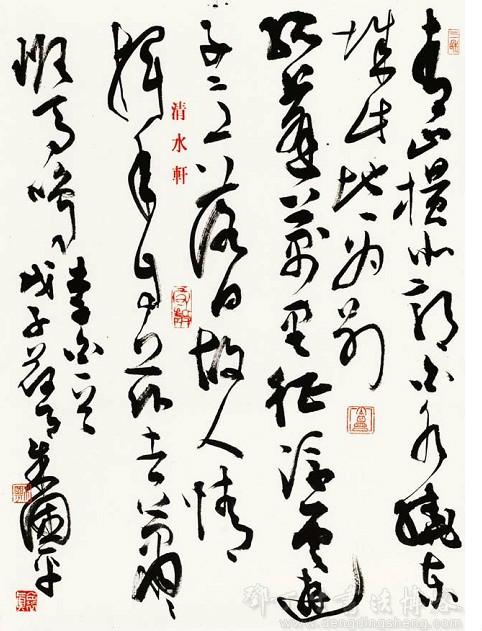 青山橫北郭白水繞東
城此地一為別
孤蓬萬里征浮雲遊
子意落日故人情
清水軒
揮手自茲去蕭蕭
班馬鳴
李白
戊子
朱國平
www.dengdingsheng.com